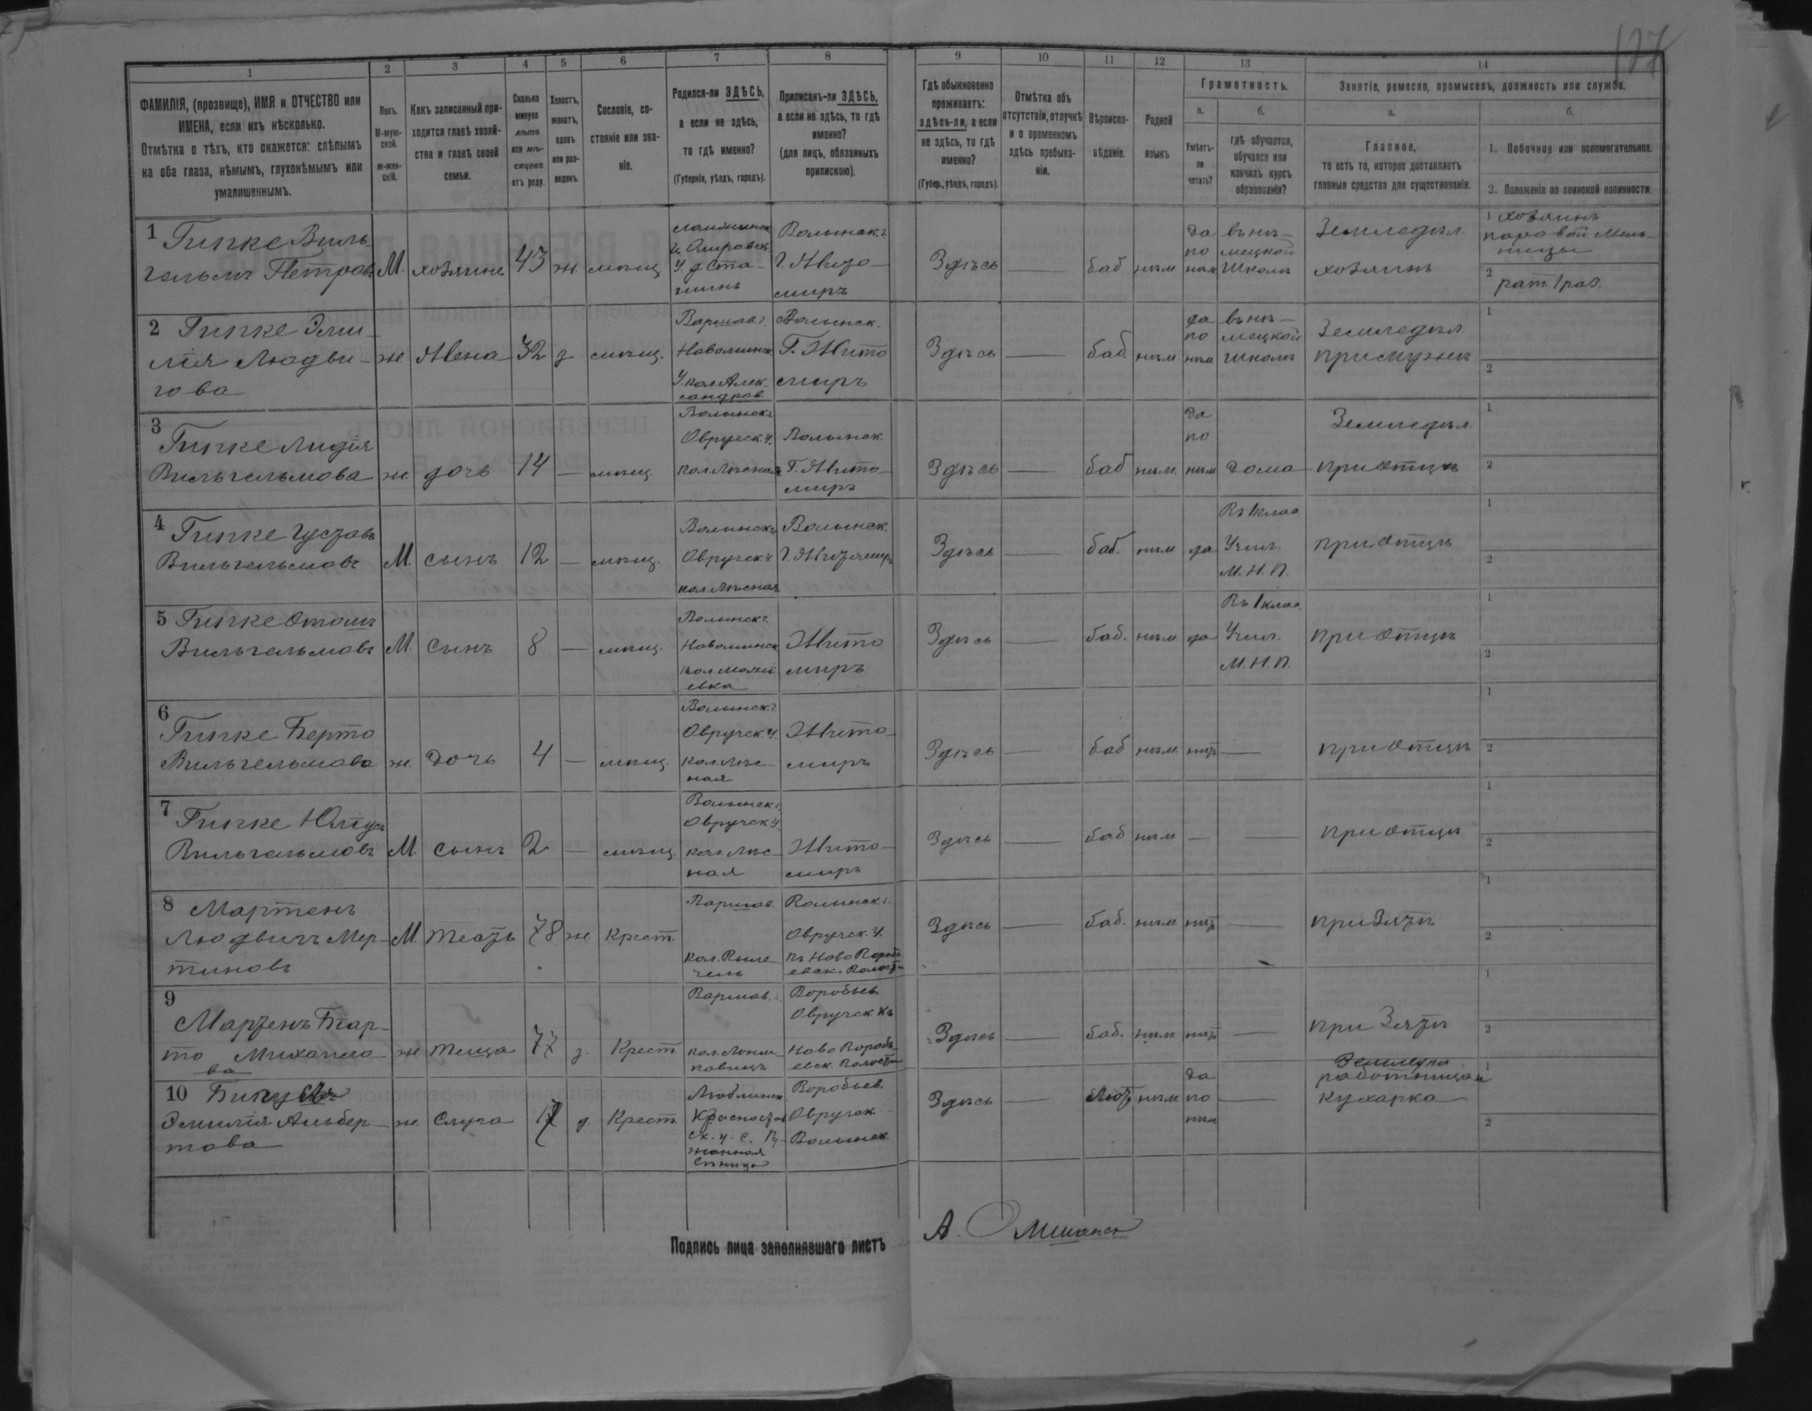 1 2 3 4 5 6 7 8 9 10 11 12 13 14
ФАМИЛІЯ, (прозвище), ИМЯ и ОТЧЕСТВО или
ИМЕНА, если ихъ нѣсколько.
Отмѣтка о тѣхъ, кто окажется: слѣпымъ
на оба глаза, нѣмымъ, глухонѣмымъ или
умалишеннымъ.
Полъ.
М-муж-
ской.
ж-жен-
скій.
Какъ записанный при-
ходится главѣ хозяй-
ства и главѣ своей
семьи.
Сколько
минуло
лѣтъ
или мѣ-
сяцевъ
отъ роду.
Холостъ,
женатъ,
вдовъ
или раз-
веденъ.
Сословіе, со-
стояніе или зва-
ніе.
Родился-ли ЗДѢСЬ,
а если не здѣсь,
то гдѣ именно?
(Губернія, уѣздъ, городъ).
Приписанъ-ли ЗДѢСЬ,
а если не здѣсь, то гдѣ
именно?
(для лицъ, обязанныхъ
припискою).
Гдѣ обыкновенно
проживаетъ:
здѣсь-ли, а если
не здѣсь, то гдѣ
именно?
(Губер., уѣздъ, городъ).
Отмѣтка объ
отсутствіи, отлучкѣ
и о временномъ
здѣсь пребыва-
ніи.
Вѣроиспо-
вѣданіе.
Родной
языкъ
Грамотность.
а.
Умѣетъ-
ли
читать?
б.
Гдѣ обучается,
обучался или
кончилъ курсъ
образованія?
Занятіе, ремесло, промыселъ, должность или служба.
а.
Главное,
то есть то, которое доставляетъ
главныя средства для существованія.
б.
1. Побочное или вспомогательное.
2. Положеніе по воинской повинности
1 Гипке Виль-
гельмъ Петровъ М. хозяинъ 43 ж мѣщ
Волынск. г
Г. Жито-
миръ
Здѣсь — баб нѣм
да
по
нѣм
въ нѣ-
мецкой
школѣ
Земледѣл
хозяинъ
1 хозяинъ
паровой мель-
ницы
2 рат. 1 раз.
2 Гипке Эми-
лія Людви-
гова
ж Жена 32 з мѣщ.
Варшав. г.
Новоминск
у. кол. Алек-
сандров
Волынск.
Г. Жито
миръ
Здѣсь — баб. нѣм
да
по
нѣм
въ нѣ-
мецкой
школѣ
Земледѣл
при мужѣ
1
2
3
Гипке Лидія
Вильгельмова ж. дочь 14 — мѣщ
Волынск. г
Овручск. у.
кол. Лѣсная
Волынск.
Г. Жито-
миръ
Здѣсь — баб нѣм
да
по
нѣм
дома
Земледѣл
при отцѣ
1
2
4 Гипке Густавъ
Вильгельмовъ М. сынъ 12 — мѣщ.
Волынск. г
Овручск. у
кол. Лѣсная
Волынск.
г. Житомиръ
Здѣсь — баб. нѣм да
Въ 1 клас.
Учил.
М. Н. П.
при отцѣ
1
2
5 Гипке
Вильгельмовъ М. сынъ 8 — мѣщ.
Волынск. г.
Жито
миръ
Здѣсь — баб. нѣм да
Въ 1 клас.
Учил.
М. Н. П.
при отцѣ
1
2
6
Гипке Берта
Вильгельмова ж. дочь 4 — мѣщ.
Волынск. г
Овручск. у.
кол. Лѣс-
ная
Жито-
миръ
Здѣсь — баб нѣм нѣтъ —
при отцѣ
1
2
7
Гипке Юліусъ
Вильгельмовъ М. сынъ 2 — мѣщ.
Волынск. г.
Овручск. у.
кол. Лѣс-
ная
Жито-
миръ
Здѣсь — баб нѣм — —
при отцѣ
1
2
8 Мартенъ
Людвигъ Мер-
тиновъ
М. тесть 78 ж Крест
Варшав.
Волынск. г.
Овручск. у.
въ Ново Вороб-
евск. Волости
Здѣсь — баб. нѣм нѣтъ
при зятѣ
1
2
9
Мартенъ
Михайло-
ва
ж теща 77 з. Крест
Варшав. г.
Воробьев
Овручск
Ново Вороб-
евск. Волости
Здѣсь — баб. нѣм нѣтъ —
при зятѣ
1
2
10
Эмилія Альбер-
това
ж. слуга 17 д Крест
Люблинск
Красностав
Воробьев
Овручск
Волынск
Здѣсь — Лют нѣм
да
по
нѣм
—
работница
кухарка
1
2
Подпись лица заполнявшаго листъ
А.